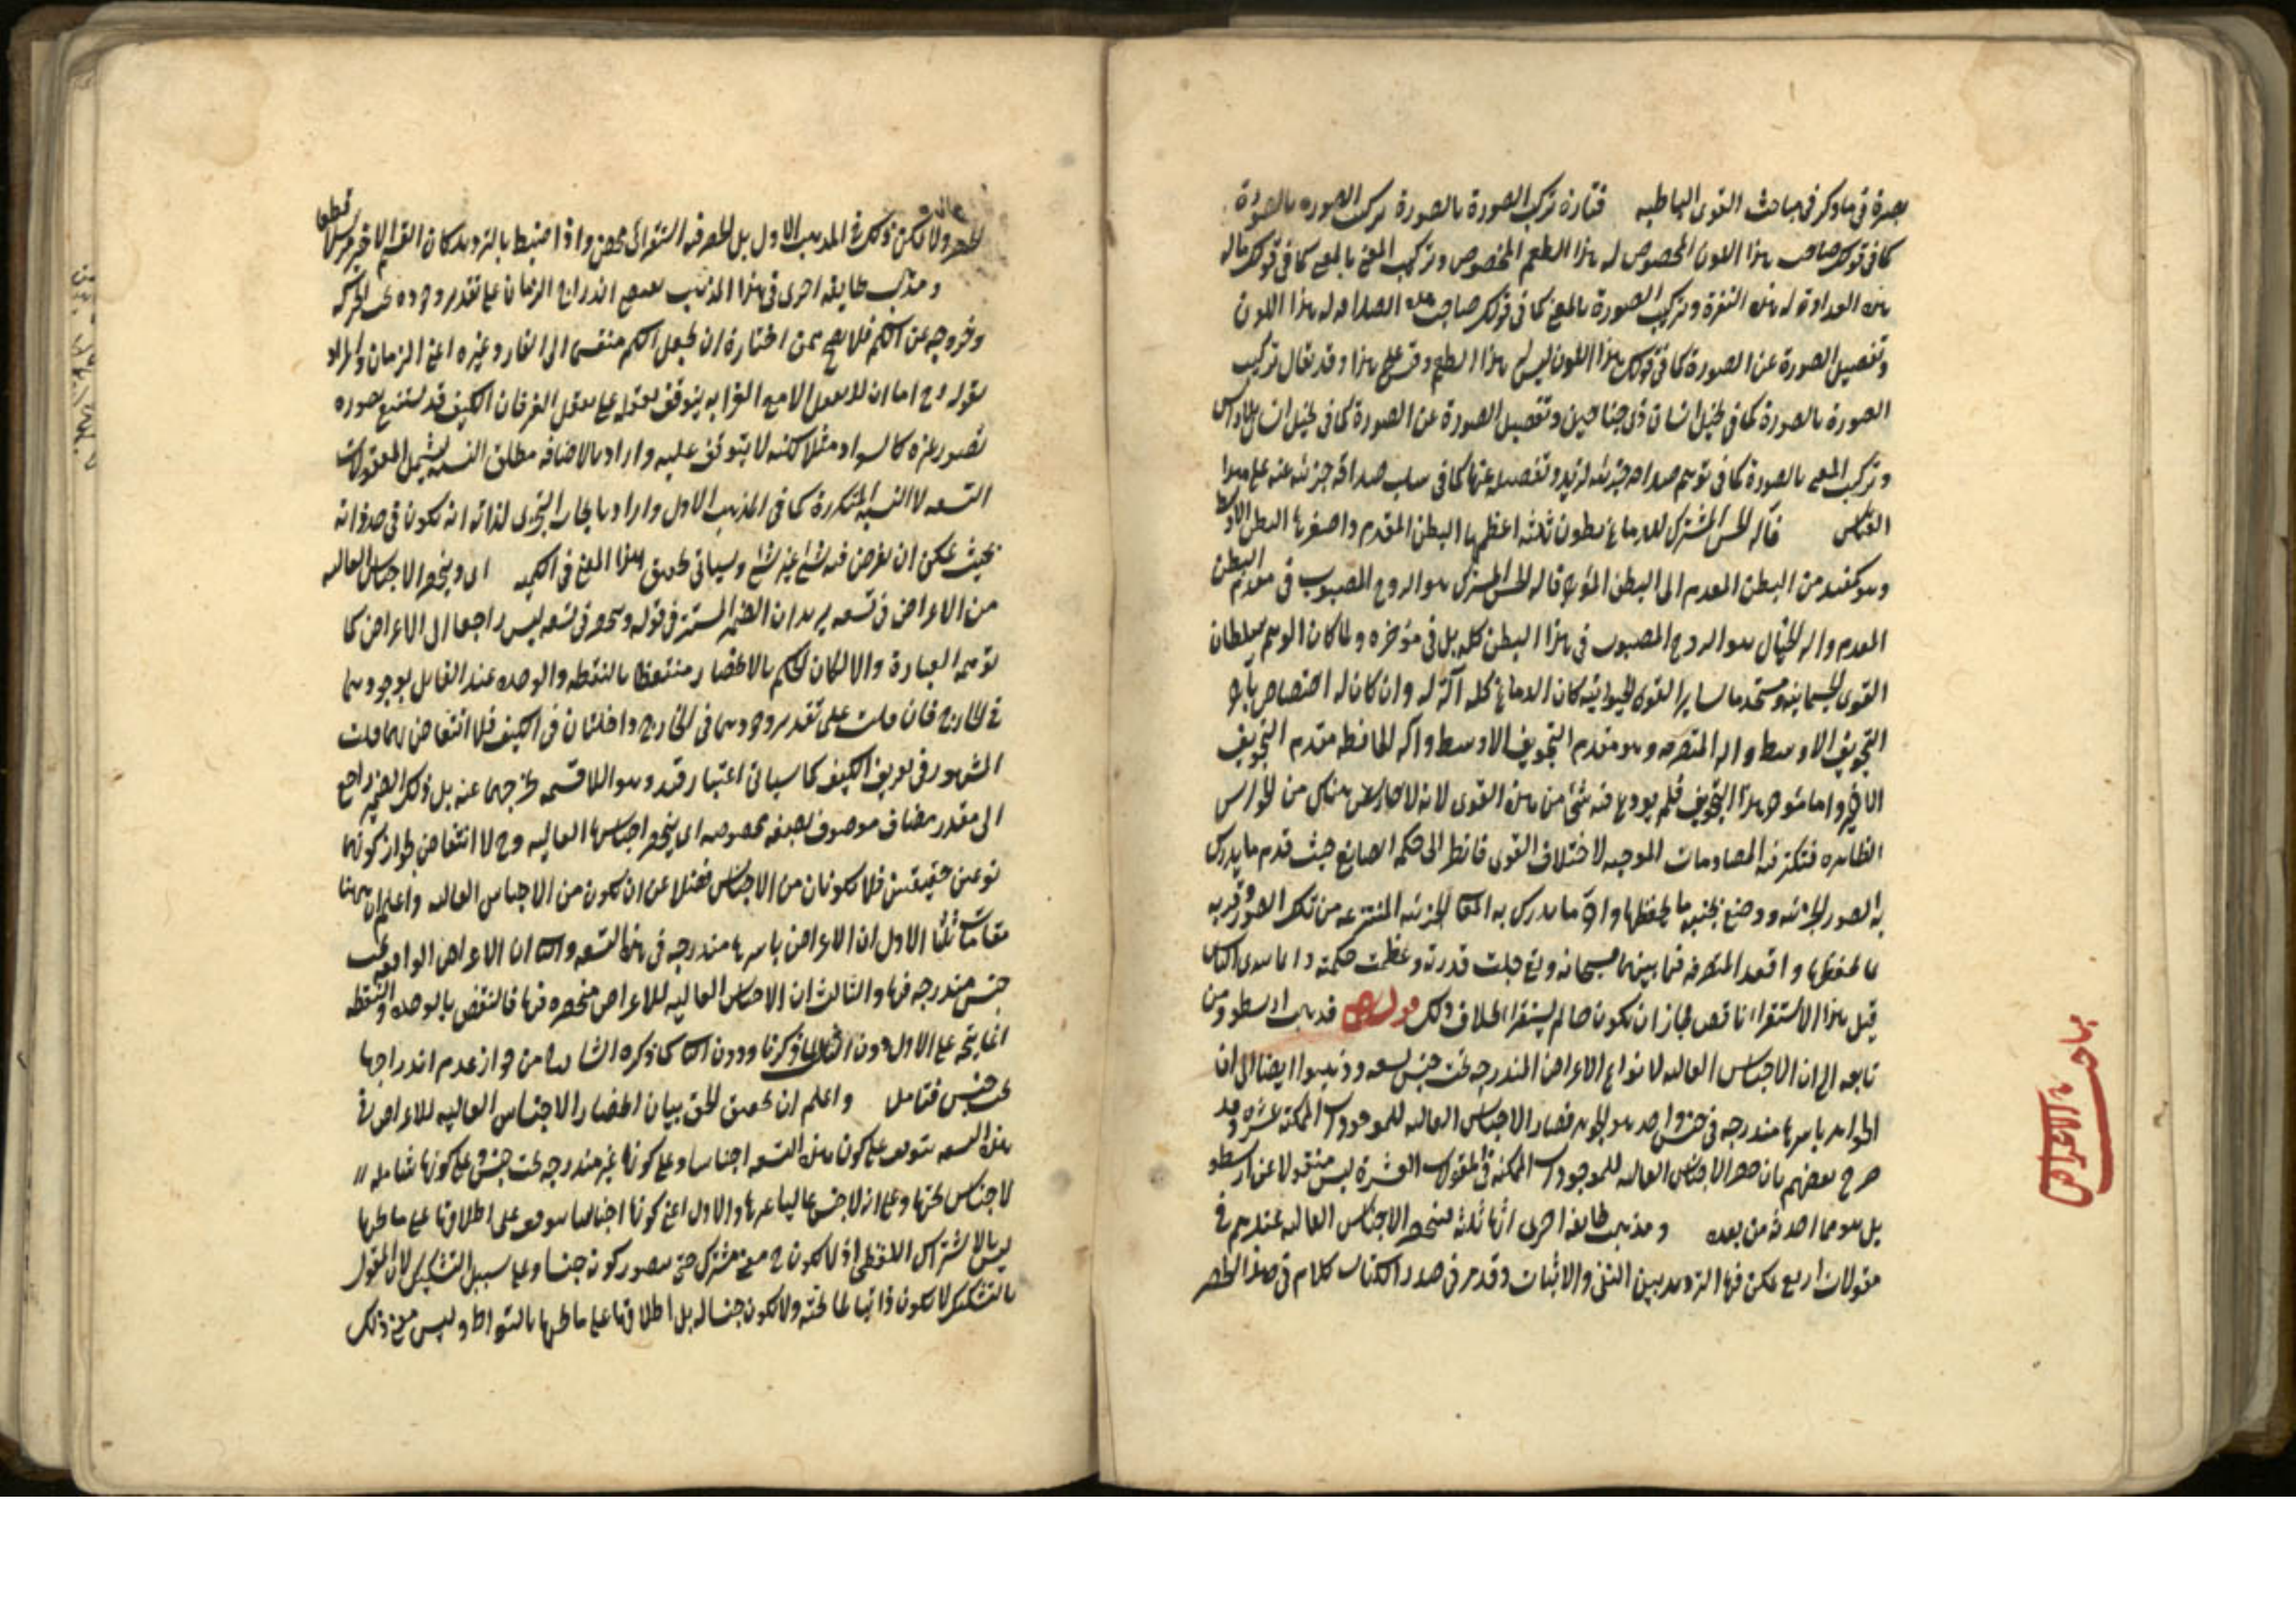 بصرة في ما ذكر في مباحث القوى الباطنه فتارة تركب الصورة بالصورة تركيب الصوره بالصورة
كما في قولك صاحب هذا اللون المخصوص له هذا الطعم المخصوص وتركيب المعنى بالمعنى كما في قولك ماله
هذه العداوة له هذه النفرة وتركيب الصورة بالمعنى كما في قولك صاحب هذه الصداقه له هذا اللون
وتفصيل الصورة عن الصورة كما في قولك هذا اللون ليس له هذا الطعم وقس على هذا وقد يقال تركيب
الصورة بالصورة كما في تخيل انسان ذي جناحين وتفصيل الصورة عن الصورة كما في تخيل انسان بلا راس
وتركيب المعنى بالصورة كما في توهم صداقه جزئيه لزيد وتفصيله عنها كما في سلب صداقه جزئيه عنه على هذا
القياس فآلة الحس المشترك للدماغ بطون ثلثه اعظمها البطن المقدم واصغرها البطن الاوسط
وهو كمنفذ من البطن المقدم الى البطن المؤخر فآلة الحس المشترك هو الروح المصبوب في مقدم البطن
المقدم وآلة الخيال هو الروح المصبوب في هذا البطن كله بل في مؤخره ولما كان الوهم سلطان
القوى الجسمانيه ومستخدما لساير القوى الحيوانيه كان الدماغ كله آلة له وان كان له اختصاص بآخر
التجويف الاوسط وآلة المتصرفه وهو مقدم التجويف الاوسط وآلة الحافظه مقدم التجويف
الاخير واما مؤخر هذا التجويف فلم يودع فيه شئ من هذه القوى لانه لا حارس هناك من الحواس
الظاهره فتكثر فيه المصادمات الموجبه لاختلاف القوى فانظر الى حكمة الصانع حيث قدم ما يدرك
به الصور الجزئيه ووضع بجنبه ما يحفظها واخر ما يدرك به المعاني الجزئيه المنتزعه من تلك الصور وقربه
بما يحفظها واقعد المتصرفه فيما بينهما سبحانه وتعالى جلت قدرته وعظمت حكمته
قيل هذا الاستقراء ناقص لجاز ان يكون ما لم يستقرا بخلاف ذلك قوله فذهب ارسطو ومن
تابعه الى ان الاجناس العاليه لانواع الاعراض المندرجه تحت جنس تسعه وذهبوا ايضا الى ان
الجواهر باسرها مندرجه في جنس واحد هو الجوهر فصار الاجناس العاليه للموجودات الممكنة عشره وقد
صرح بعضهم بان حصر الاجناس العاليه للموجودات الممكنه في المقولات العشرة ليس منقولا عن ارسطو
بل هو مما احدثه من بعده ومذهب طائفة اخرى انها ثلثه فينحصر الاجناس العاليه عندهم في
مقولات اربع يمكن فيها الترديد بين النفي والاثبات وقد مر في صدر الكتاب كلام في هذا الحصر
مباحث الاعراض
الحصر ولا يمكن ذلك في المذهب الاول بل الحصر فيه استقرائي محض واذا ضبط بالترديد كان القسم الاخير مرسلا قطعا
ومذهب طايفه اخرى في هذا المذهب اندراج الزمان على تقدير وجوده تحت الحركه
وخروجه عن الكم فلا يصح ممن اختاره ان يجعل الكم منقسما الى القار وغيره اعني الزمان والمراد
بقوله اما ان لا يعقل الا مع الغير انه يتوقف تعقله على تعقل الغير فان الكيف قد يستتبع تصوره
تصور غيره كالسواد مثلا لكنه لا يتوقف عليه واراد بالاضافه مطلق النسبه ليشمل المقولات
التسعه لا النسبه المتكررة كما في المذهب الاول واراد بايجاب التجزى لذاته ان يكون في حد ذاته
بحيث يمكن ان يفرض فيه شئ غير شئ وسياتي تحقيق هذا المعنى في الكميه اي وينحصر الاجناس العاليه
من الاعراض في تسعه يريد ان الضمير المستتر في قوله وينحصر في تسعه ليس راجعا الى الاعراض كما
توهمه العبارة والا لكان الحكم بالانحصار منتقضا بالنقطه والوحده عند القايل بوجودهما
في الخارج فان قلت على تقدير وجودهما في الخارج داخلتان في الكيف فلا انتقاض بهما قلت
المشهور في تعريف الكيف كما سياتي اعتبار قيد وهو اللا قسمه يخرجهما عنه بل ذلك الضمير راجع
الى مقدر مضاف موصوف بصفه مخصوصه اي ينحصر اجناسها العاليه وح لا انتقاض لجواز كونهما
نوعين حقيقيين فلا يكونان من الاجناس فضلا عن ان يكون من الاجناس العاليه واعلم ان ههنا
مقامات ثلثا الاول ان الاعراض باسرها مندرجه في هذه التسعه والثاني ان الاعراض الواقعه تحت
جنس مندرجه فيها والثالث ان الاجناس العاليه للاعراض منحصره فيها فالنقض بالوحده والنقطه
انما يتجه على الاول دون الثالث لما ذكرنا ودون الثاني كما ذكره الشارح من جواز عدم اندراجها
تحت جنس فتامل واعلم ان تحقيق الحق بيان انحصار الاجناس العاليه للاعراض في
هذه التسعه يتوقف على كون هذه التسعه اجناسا وعلى كونها غير مندرجه تحت جنس وعلى كونها شاملة
لاجناس تحتها وعلى انه لا جنس عاليا غيرها والاول اعني كونها اجناسا يتوقف على اطلاقها على ما تحتها
ليس بالاشتراك اللفظي اذ لا يكون ح معنى مشترك حتى يتصور كونه جنسا وعلى سبيل التشكيك لان المقول
بالتشكيك لا يكون ذاتيا لما تحته ولا يكون جنسا له بل اطلاقها على ما تحتها بالتواطؤ وليس معنى ذلك